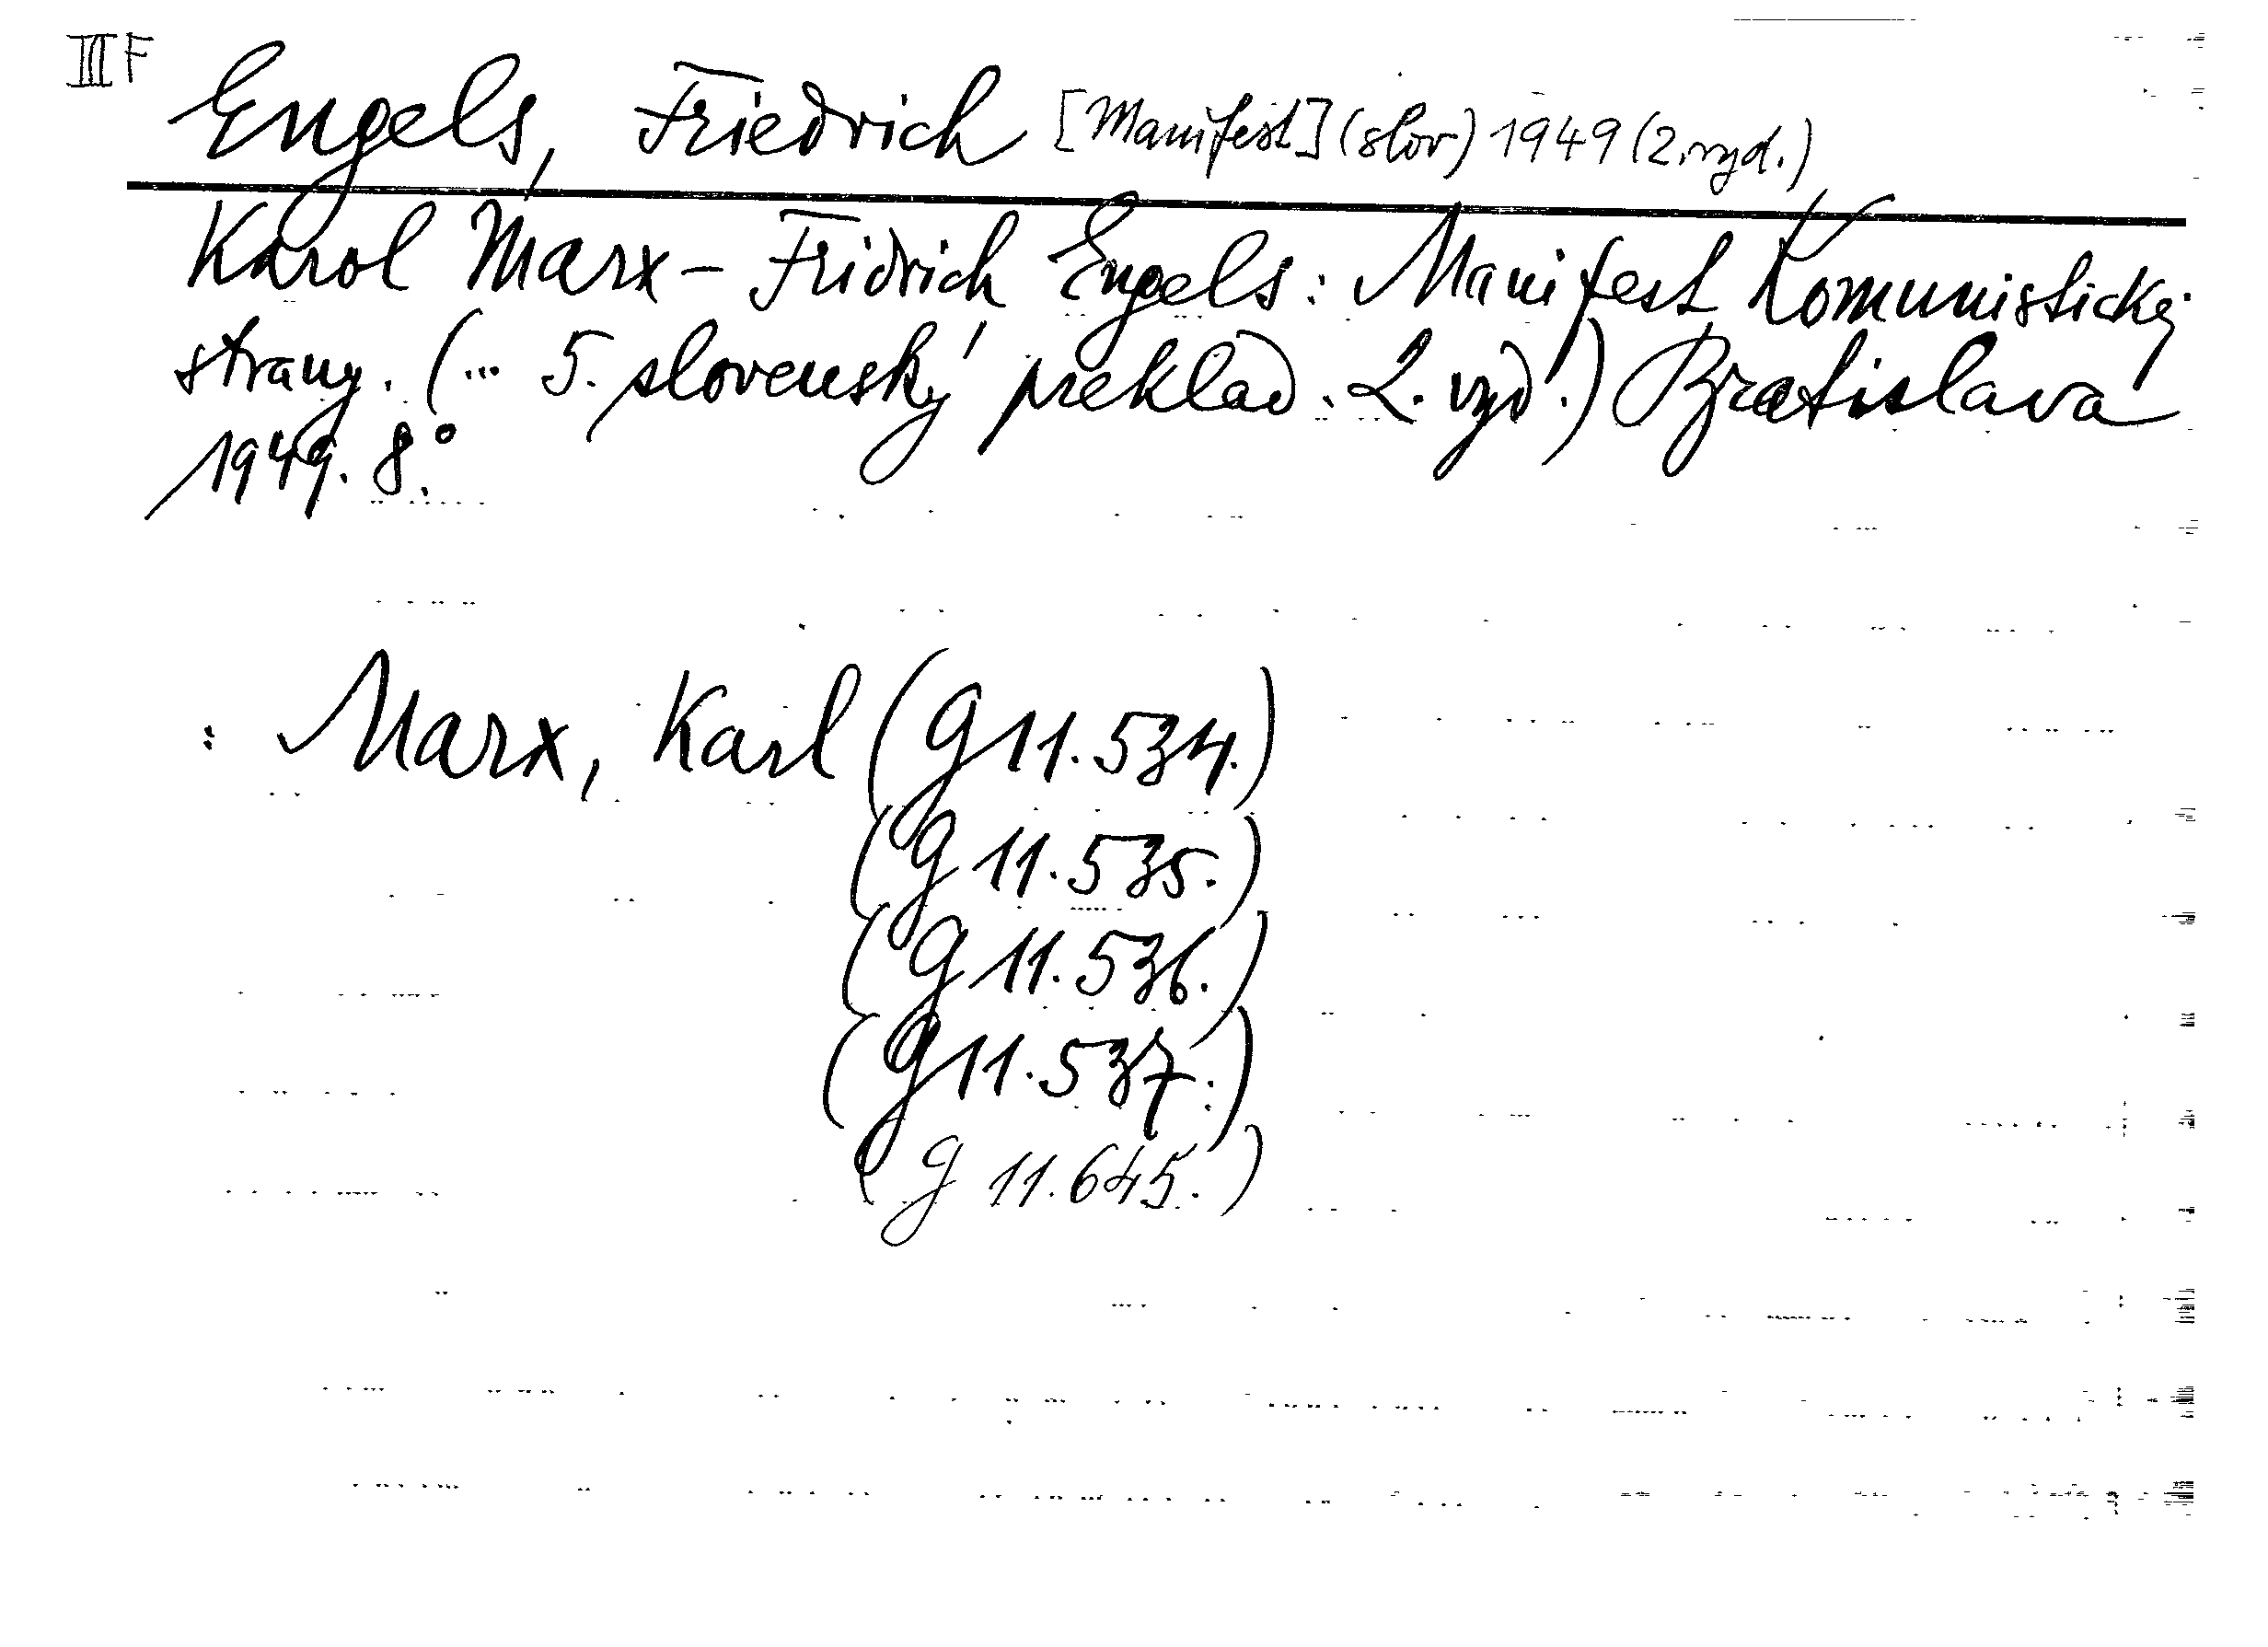 III F
Engels, Friedrich [Manifest] (slov) 1949 (2. vyd.)
Karol Marx – Fridrich Engels: Manifest Komunistickej
strany. (... 5. slovenský preklad. 2. vyd.) Bratislava
1949. 8°.
: Marx, Karl (G 11.534.)
(G 11.535.)
(G 11.536.)
(G 11.537.)
(G 11.645.)